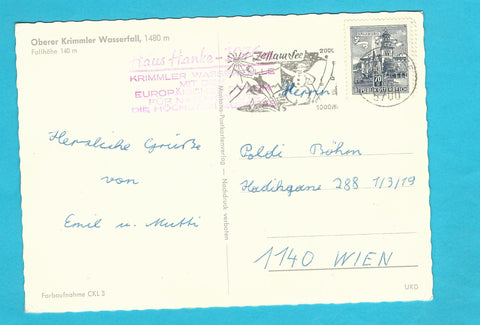 Oberer Krimmler Wasserfall, 1480 m
Fallhöhe 140 m
Haus Hanke
KRIMMLER WASSERFÄLLE
MIT
EUROPA
FÜR N
DIE HÖCH
Zell am See
2000
1000m
5700
REPUBLIK ÖSTERREICH
Herrn
Herzliche Grüße
von
Emil u. Mutti
Poldi Böhm
Hadikgasse 288 1/3/19
1140 WIEN
Postkartenverlag – Nachdruck verboten
Farbaufnahme CKL 3
UKD